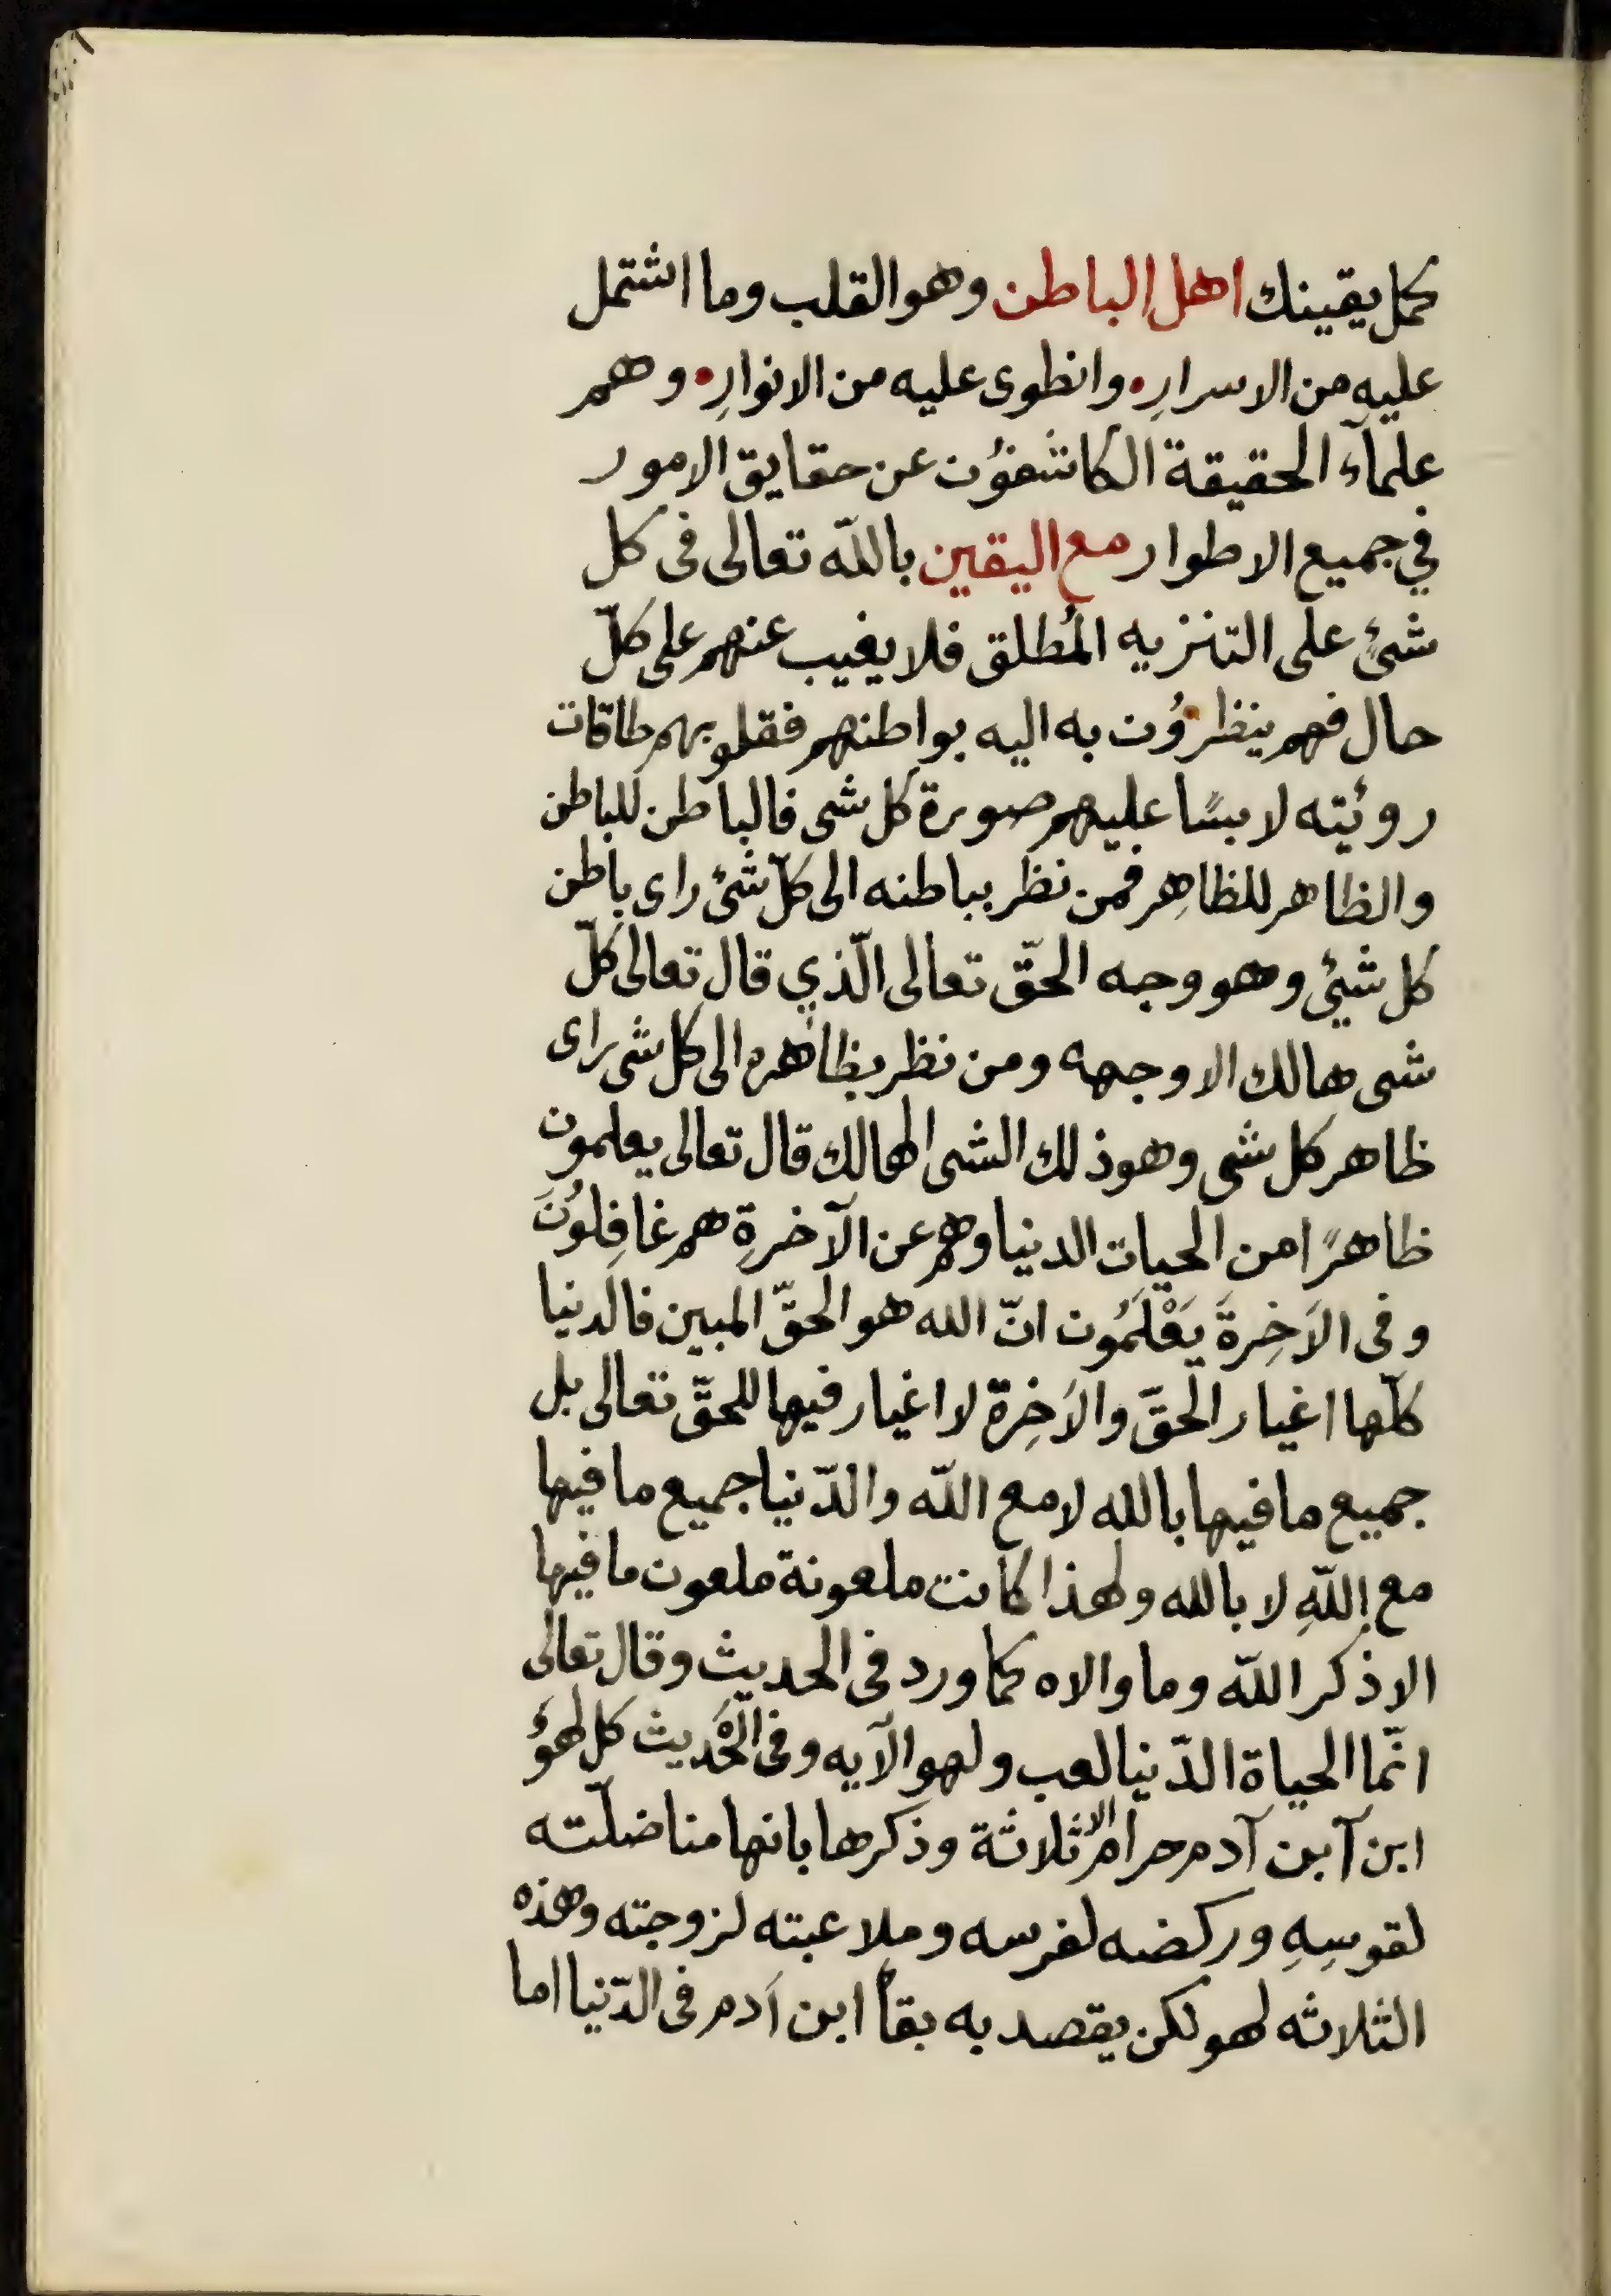 كمل يقينك اهل الباطن وهو القلب وما اشتمل
عليه من الاسرارِ • وانطوى عليه من الانوارِ • وهم
علمآء الحقيقة الكاشفؤن عن حقايق الامور
في جميع الاطوار مع اليقين باللّه تعالى فى كل
شئٍ على التنزيه المُطلق فلا يغيب عنهم على كلّ
حال فهم ينظرؤن به اليه بواطنهم فقلوبهم طاقات
روئيته لابسًا عليهم صورة كل شى فالباطن للباطن
والظاهر للظاهِر فمن نظر بباطنه الى كلّ شئ راى باطن
كل شيئ وهو وجه الحقّ تعالى الّذي قال تعالى كلّ
شى هالك الا وجهه ومن نظر بظاهره الى كل شى راى
ظاهر كل شى وهو ذلك الشى الهالك قال تعالى يعلمون
ظاهرًا من الحيات الدنيا وهم عن الآخرةِ هم غافِلوُنَ
وفى الاَخِرةَ يَعْلَمُون انّ الله هو الحقّ المبين فالدنيا
كلّها اغيار الحقّ والاَخِرة لا اغيار فيها للحقّ تعالى بل
جميع ما فيها بالله لا مع اللّه والدّنيا جميع ما فيها
مع اللّهِ لا بالله ولهذا كانت ملعونة ملعون ما فيها
الا ذكر اللّه وما والاه كما ورد فى الحديث وقال تعالى
انّما الحياة الدّنيا لعب ولهو الآيه وفى الحَديث كل لهوُ
ابن آبن آدم حرام الا ثلاثة وذكرها بانها مناضلته
لقوسِهِ وركضه لفرسه وملاعبته لزوجته وهذه
الثلاثه لهو لكن يقصد به بقأ ابن اَدم فى الدّنيا اما